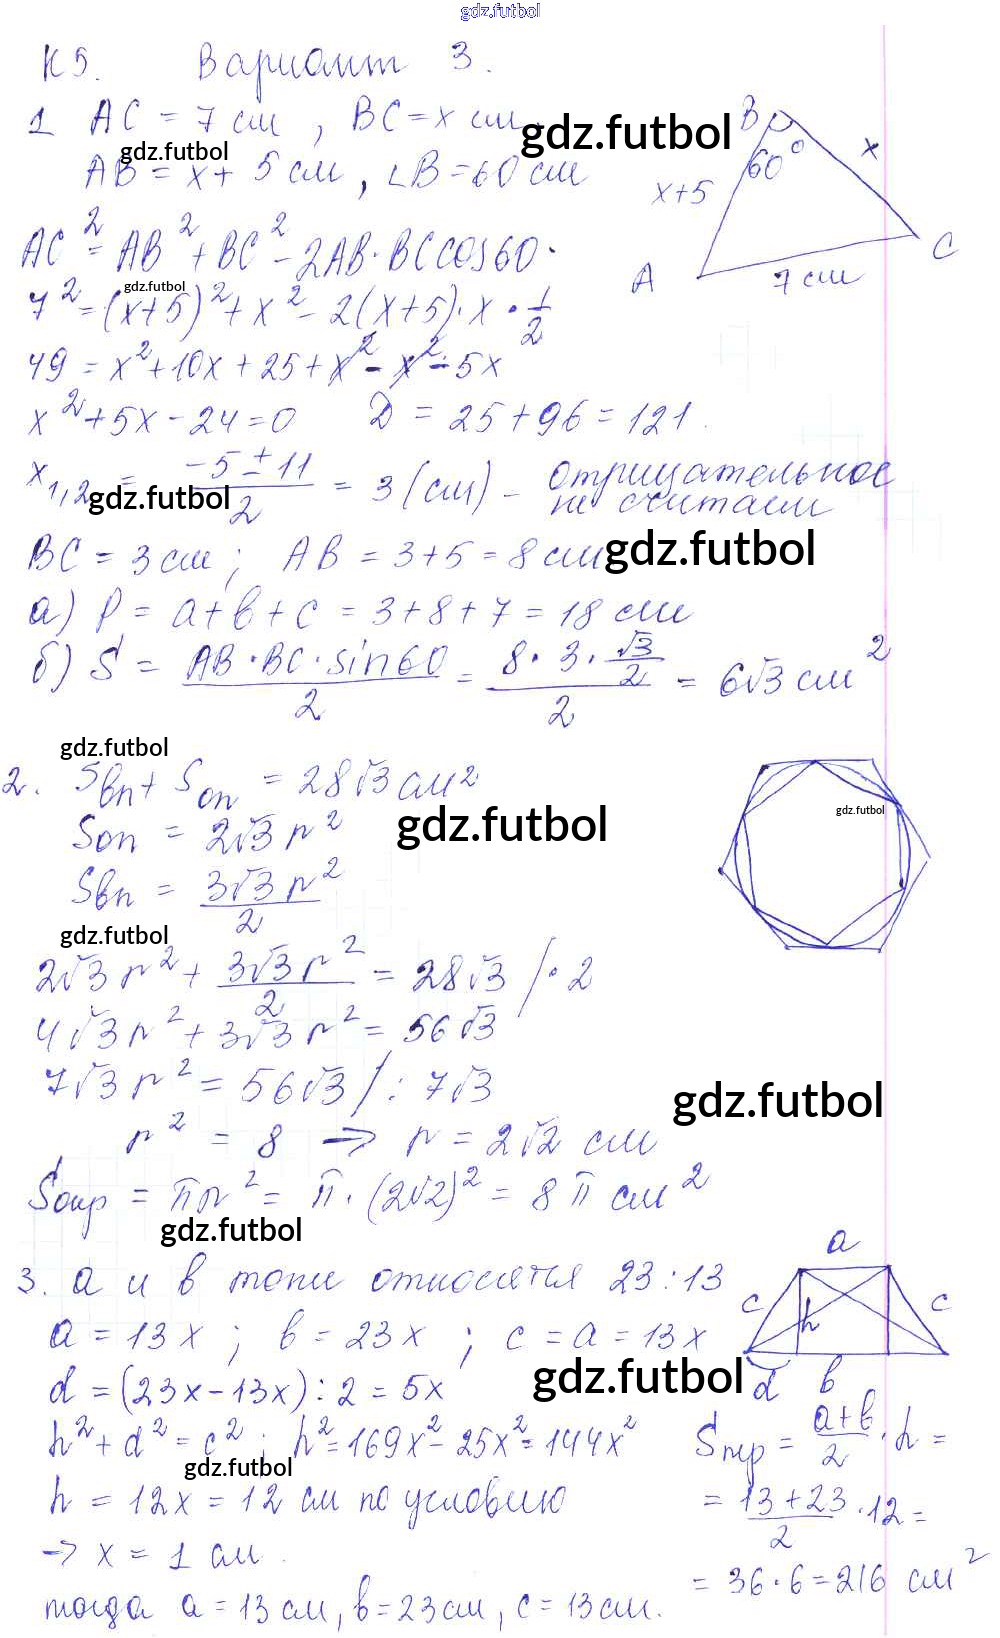 gdz.futbol
К5. Вариант 3.
1 AC = 7 см, BC = x см.
gdz.futbol
gdz.futbol
AB = x + 5 см, ∠B = 60 см
B 60° x
x+5
A 7 см C
AC² = AB² + BC² - 2AB·BC cos60·
gdz.futbol
7² = (x+5)² + x² - 2(x+5)·x·1/2
49 = x² + 10x + 25 + x² - x² - 5x
x² + 5x - 24 = 0 D = 25 + 96 = 121.
x1,2 = (-5 ± 11)/2 = 3 (см) - отрицательное не считаем
gdz.futbol
BC = 3 см; AB = 3 + 5 = 8 см
gdz.futbol
а) P = a + b + c = 3 + 8 + 7 = 18 см
б) S = (AB·BC·sin60)/2 = (8·3·√3/2)/2 = 6√3 см²
gdz.futbol
2. Sвп + Sоп = 28√3 см²
gdz.futbol
gdz.futbol
Sоп = 2√3 r²
Sвп = 3√3 r²/2
gdz.futbol
2√3 r² + 3√3 r²/2 = 28√3 /·2
4√3 r² + 3√3 r² = 56√3
7√3 r² = 56√3 /: 7√3
gdz.futbol
r² = 8 → r = 2√2 см
Sокр = πr² = π·(2√2)² = 8π см²
gdz.futbol
3. a и b тоже относятся 23:13
a = 13x; b = 23x; c = a = 13x
gdz.futbol
a
c h c
d b
d = (23x - 13x) : 2 = 5x
h² + d² = c²; h² = 169x² - 25x² = 144x²
gdz.futbol
h = 12x = 12 см по условию
→ x = 1 см.
тогда a = 13 см, b = 23 см, c = 13 см.
Sтр = (a+b)/2 · h =
= (13+23)/2 · 12 =
= 36·6 = 216 см²